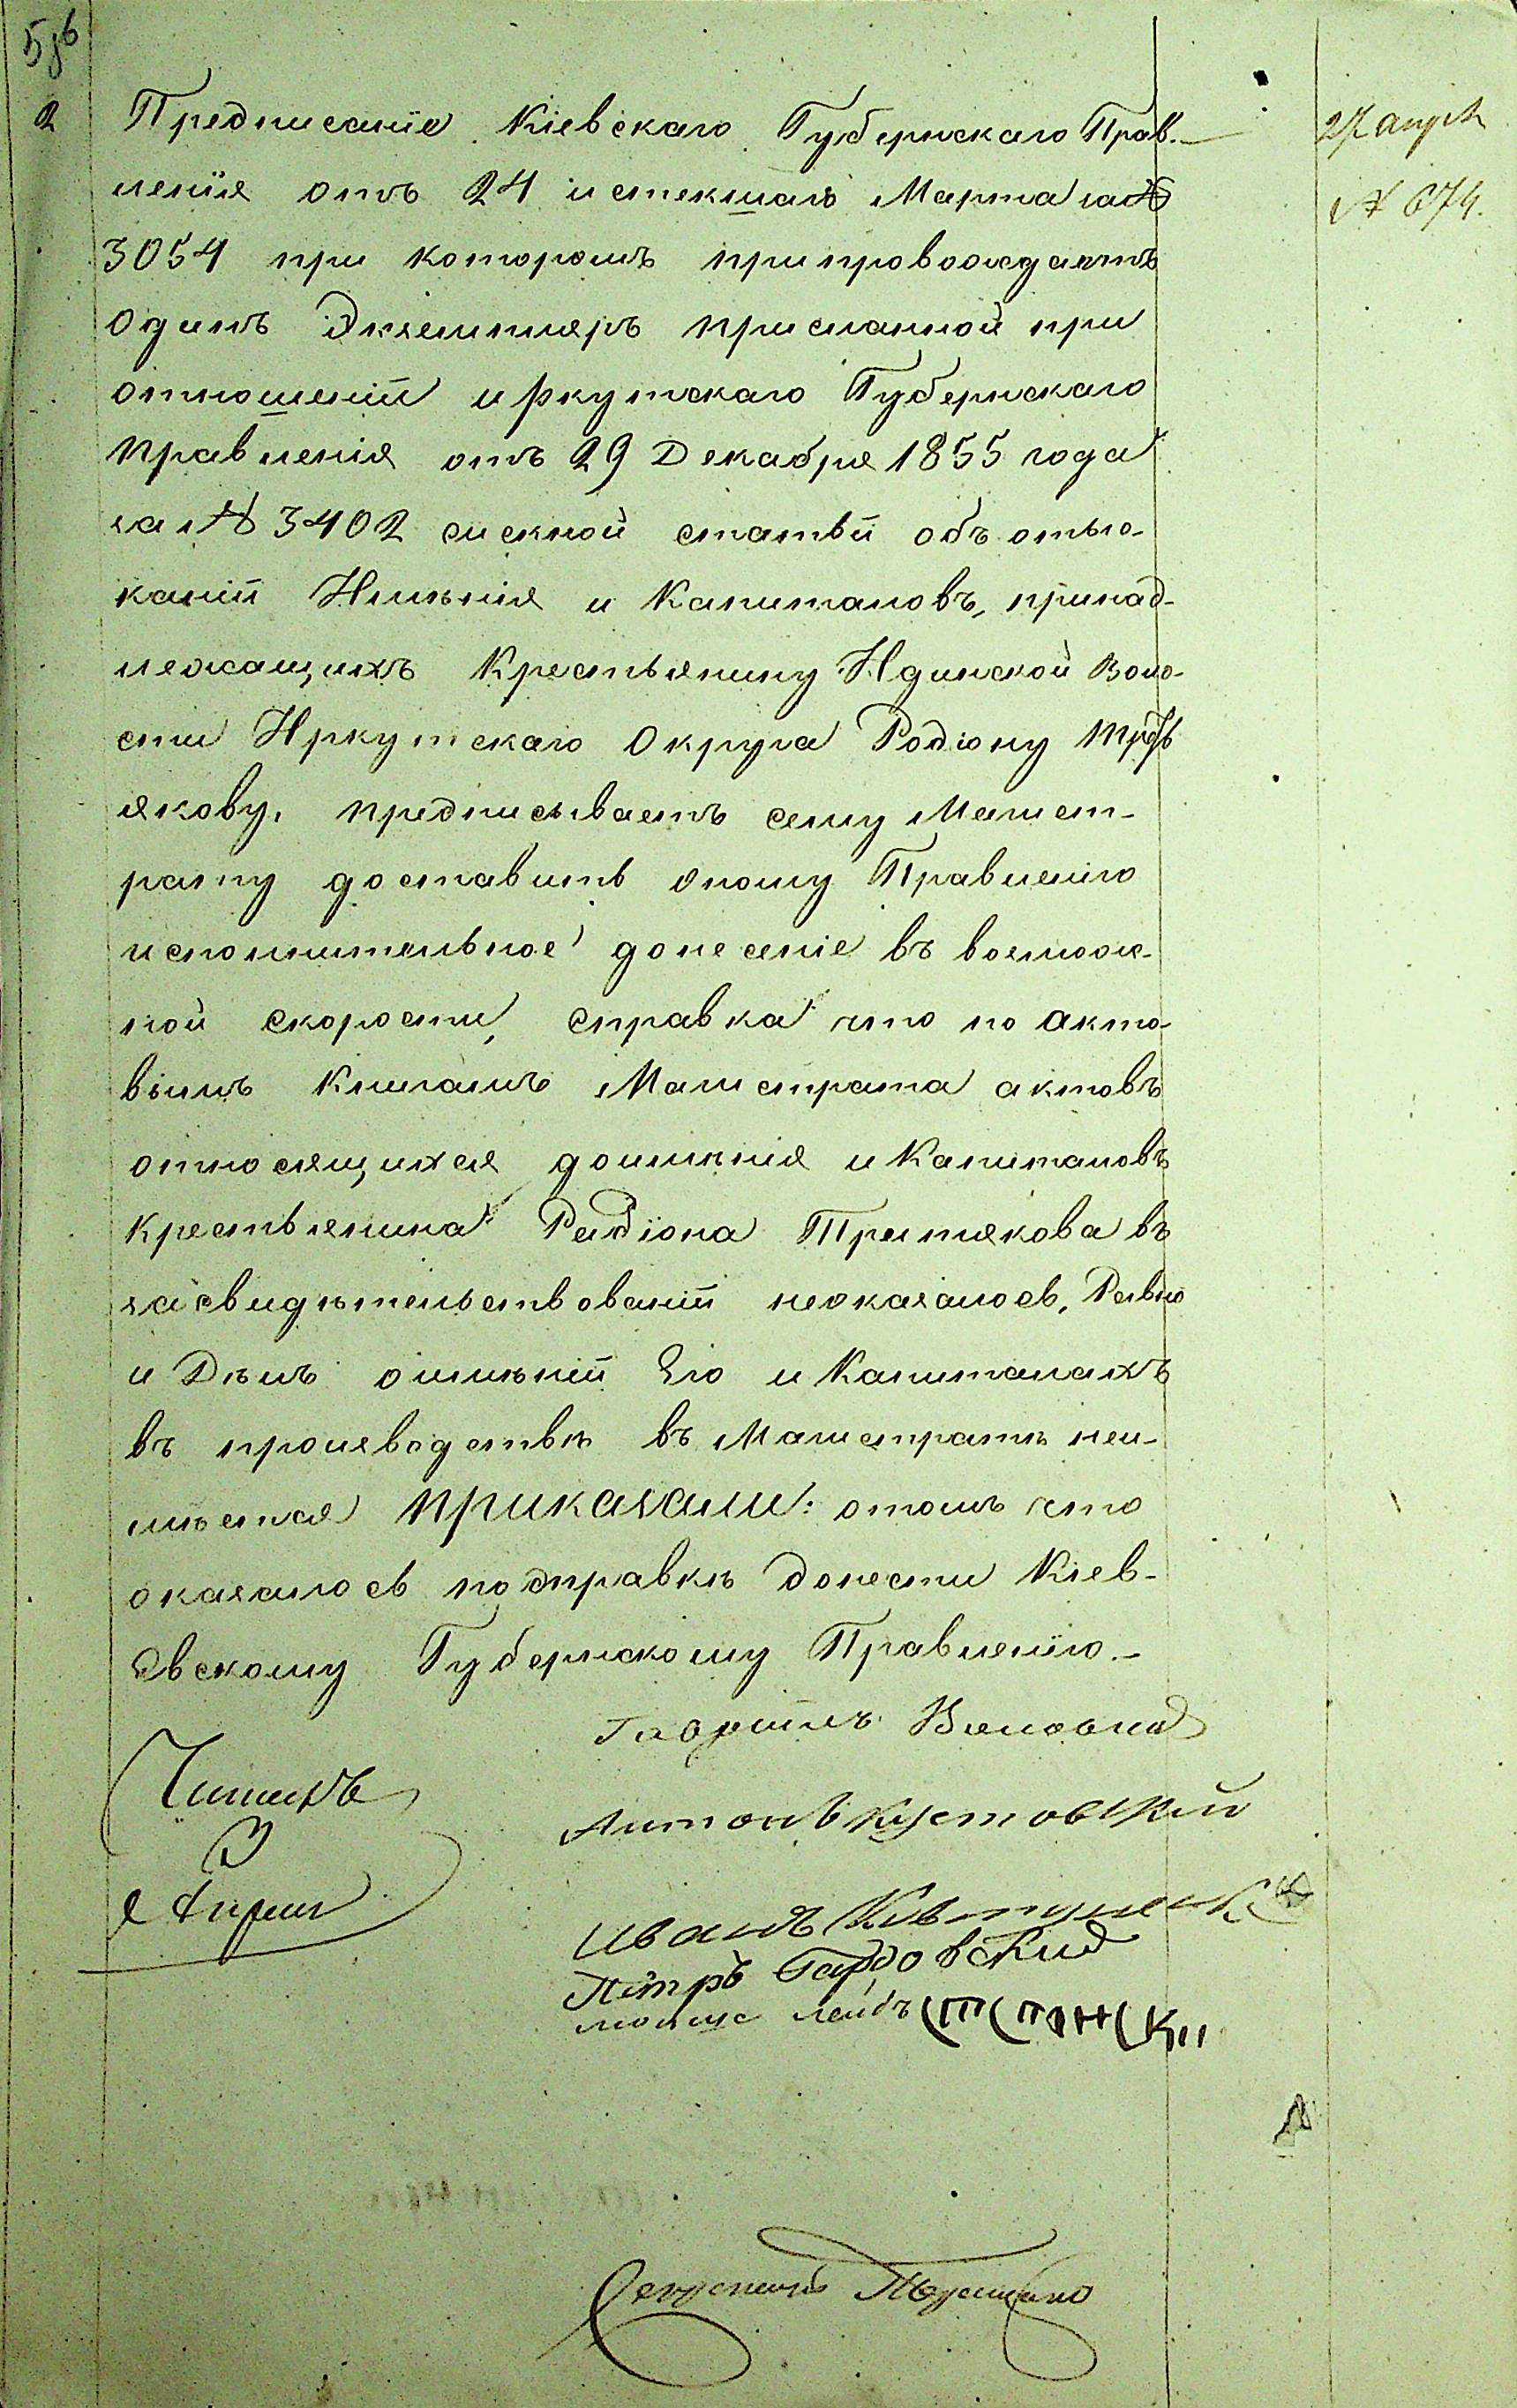 2
Предписаніе Кіевскаго Губернскаго Прав.
ленія отъ 24 истекшаго Марта за №
3054 при которомъ припровождаетъ
одинъ Экземпляръ присланной при
отношеніи иркутскаго Губернскаго
правленія отъ 29 Декабря 1855 года
за № 3402 сискной статьи объ отыс-
каніи Имѣнія и Капиталовъ, принад-
лежащихъ Крестьянину Идинской Воло-
сти Иркутскаго Округа Родіону Треть
якову, предписываетъ сему Магист-
рату доставить оному Правленію
исполнительное донесеніе въ возмож-
ной скорости, справка что по акто-
вымъ Книгамъ Магистрата актовъ
относящихся доимѣнія и Капиталовъ
Крестьянина Радіона Третякова въ
засвидѣтельствованіи неоказалось, Равно
и Дѣлъ оимѣніи Его и Капиталахъ
въ производствѣ въ Магистратѣ неи-
мѣется приказали: отомъ что
оказалось посправкѣ донести Кіев-
евскому Губернскому Правленію.-
27 апрѣл
№ 674.
Гаврiилъ
Антонъ Кустовскій
Иванъ
Петръ
Лейбъ
Читалъ